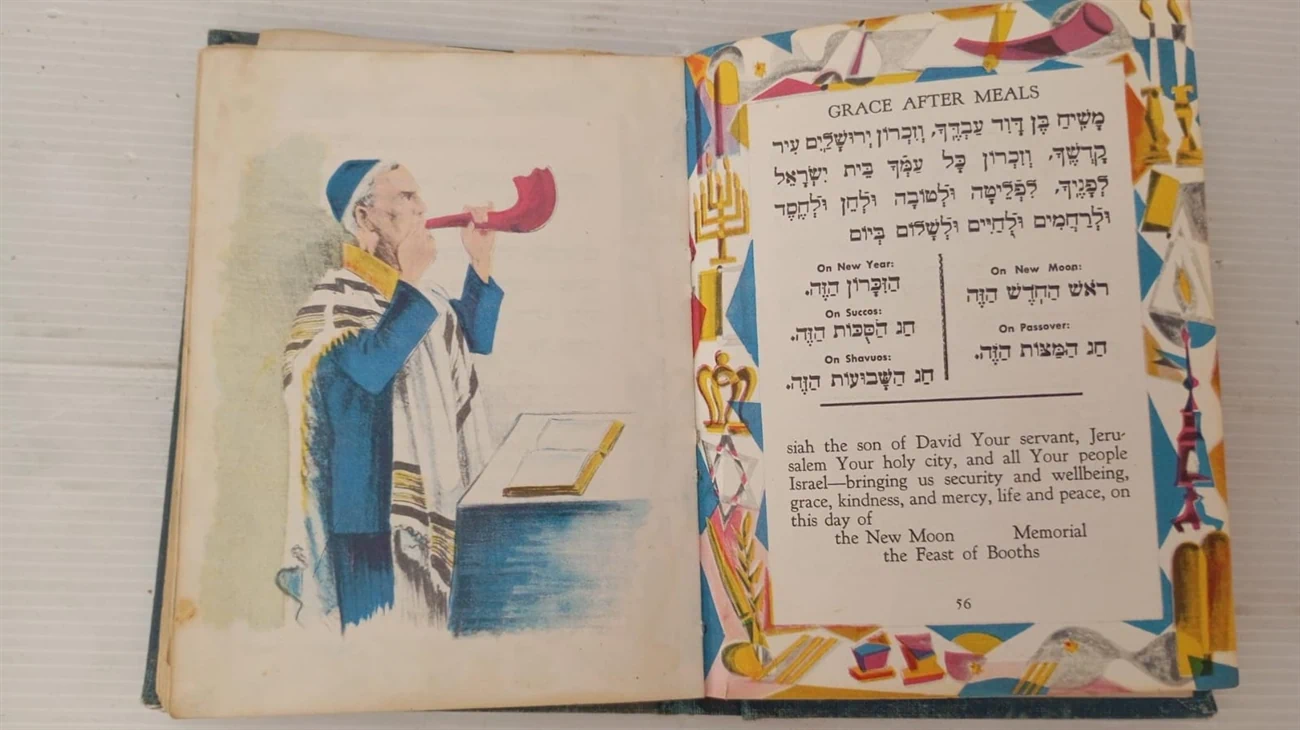 GRACE AFTER MEALS
מָשִׁיחַ בֶּן דָּוִד עַבְדֶּךָ, וְזִכְרוֹן יְרוּשָׁלַיִם עִיר
קָדְשֶׁךָ, וְזִכְרוֹן כָּל עַמְּךָ בֵּית יִשְׂרָאֵל
לְפָנֶיךָ, לִפְלֵיטָה וּלְטוֹבָה וּלְחֵן וּלְחֶסֶד
וּלְרַחֲמִים וּלְחַיִּים וּלְשָׁלוֹם בְּיוֹם
On New Moon:
רֹאשׁ הַחֹדֶשׁ הַזֶּה
On Passover:
חַג הַמַּצּוֹת הַזֶּה.
On New Year:
הַזִּכָּרוֹן הַזֶּה.
On Succos:
חַג הַסֻּכּוֹת הַזֶּה.
On Shavuos:
חַג הַשָּׁבוּעוֹת הַזֶּה.
siah the son of David Your servant, Jeru-
salem Your holy city, and all Your people
Israel—bringing us security and wellbeing,
grace, kindness, and mercy, life and peace, on
this day of
the New Moon Memorial
the Feast of Booths
56